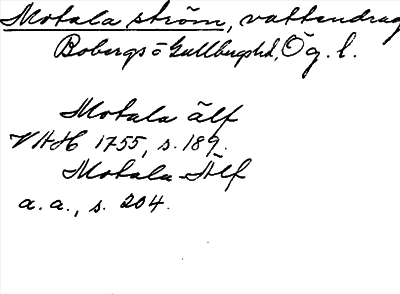 Motala ström, vattendrag
Bobergs o Gullbergs hd, Ög. l.
Motala älf
VAH 1755, s. 189.
Motala Älf
a. a., s. 204.